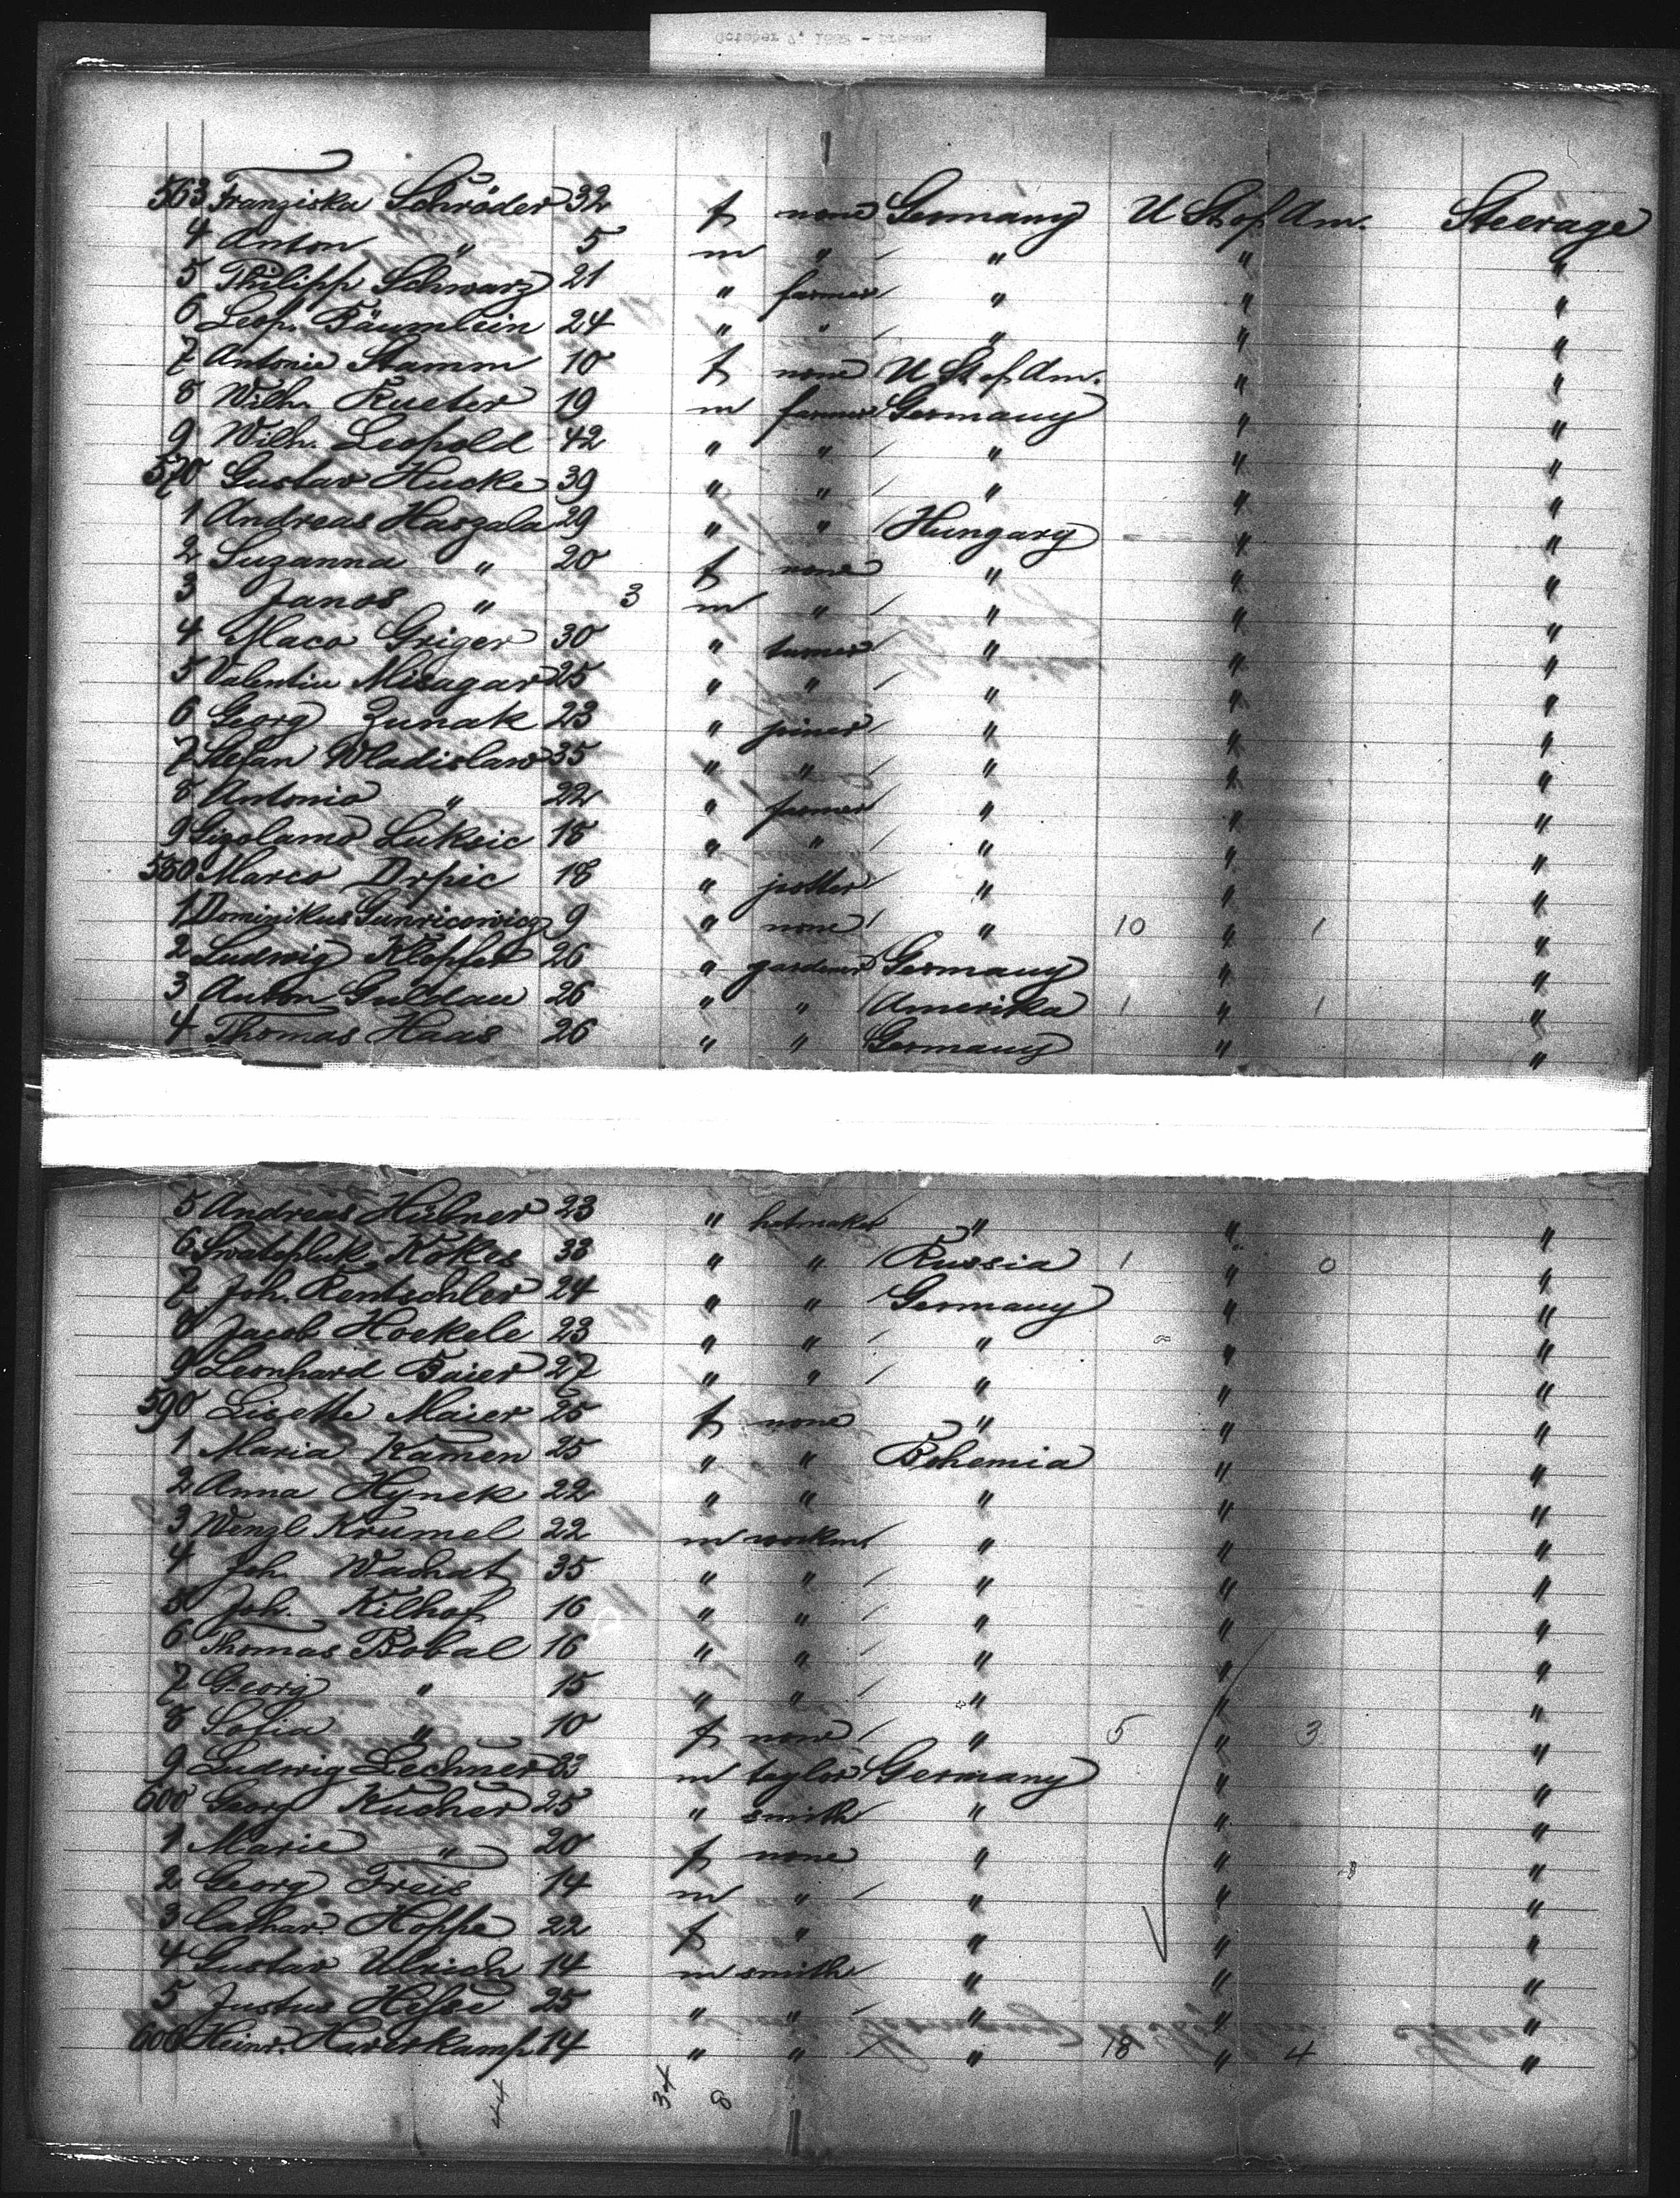 563 Franziska Schröder 32 f none Germany U St of Am. Steerage
4 Anton " 5 m " " " "
5 Philipp Schwarz 21 " farmer " " "
6 Leop. Bäumlein 24 " " " " "
7 Antonie Stamm 10 f none U St of Am. " "
8 Wilh. Rueter 19 m farmer Germany " "
9 Wilh. Leopold 42 " " " " "
570 Gustav Hucke 39 " " " " "
1 Andreas Haszala 29 " " Hungary " "
2 Suzanna " 20 f none " " "
3 Janos " 3 m " " " "
4 Maco Griger 30 " turner " " "
5 Valentin Misagar 25 " " " " "
6 Georg Zunak 23 " joiner " " "
7 Stefan Wladislaw 35 " " " " "
8 Antonio " 22 " farmer " " "
9 Gigolamo Luksic 18 " " " " "
580 Marco Drpic 18 " potter " " "
1 Dominikus 9 " none " 10 " 1 "
2 Ludwig Klopfer 26 " gardener Germany " "
3 Anton Guldau 26 " " Amerika 1 " 1 "
4 Thomas Haas 26 " " Germany " "
5 Andreas Hübner 23 " hatmaker " " "
6 Swatopluk Kokes 38 " " Russia 1 " 0 "
7 Joh. Rentschler 24 " " Germany " "
8 Jacob Hoekele 23 " " " " "
9 Leonhard Baier 27 " " " " "
590 Lisette Maier 26 f none " " "
1 Maria Kamen 25 " " Bohemia " "
2 Anna Hynek 22 " " " " "
3 Wenzl Krumel 22 m workm " " "
4 Joh. Wachat 35 " " " " "
5 Joh. Kilhof 16 " " " " "
6 Thomas Bobal 16 " " " " "
7 Georg " 15 " " " " "
8 Sofia " 10 f none " 5 " 3 "
9 Ludwig Lechner 33 m taylor Germany " "
600 Georg Kucher 25 " smith " " "
1 Marie " 20 f none " " "
2 Georg Freis 14 m " " " "
3 Cathar. Hoppe 22 f " " " "
4 Gustav Ulrich 14 m smith " " "
5 Justus Hesse 25 " " " " "
606 Heinr. Haverkamp 14 " " " 18 " 4 "
44 34 8